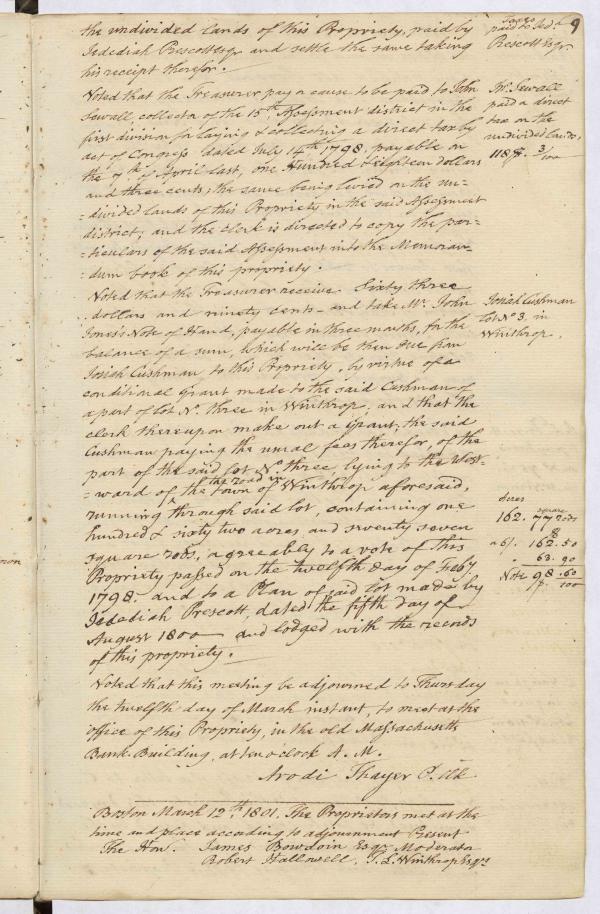 9
the undivided lands of this Propriety, paid by
Jedediah Prescott Esqr. and settle the same taking
his receipt therefor.
Taxes
paid to Jedh.
Prescott Esqr
Voted that the Treasurer pay or cause to be paid to John
Sewall, collector of the 15th. Assessment district in the
first division for laying & collecting a direct tax by
act of Congress dated July 14th 1798, payable on
the 7th. of April last, one Hundred & Eighteen dollars
and three cents, the same being levied on the un-
-divided lands of this Propriety in the said Assessment
district, and the clerk is directed to copy the par-
-ticulars of the said Assessment into the Memoran-
-dum book of this propriety.
Jno. Sewall
paid a direct
tax on the
undivided lands,
118 3/100
Voted that the Treasurer receive Sixty three
dollars and ninety cents - and take Mr. John
Jones's Note of Hand, payable in three months, for the
balance of a sum, which will be then due from
Josiah Cushman, to this Propriety, by virtue of a
conditional Grant made to the said Cushman of
a part of lot No. three in Winthrop, and that the
clerk thereupon make out a Grant, the said
Cushman paying the usual fees therefor, of the
part of the said lot No. three, lying to the West-
-ward of the road in the town of Winthrop aforesaid,
running through said lot, containing one
hundred & sixty two acres and seventy seven
square rods, agreeably to a vote of this
Propriety passed on the twelfth day of Feby
1798. and to a Plan of said lot made by
Jedediah Prescott, dated the fifth day of
August 1800 - and lodged with the records
of this propriety. -
Josiah Cushman
lot No 3. in
Winthrop.
Acres square
162. 77 rods
a 6/. 162.50
63.90
Note 98.60/100
Voted that this meeting be adjourned to Thursday
the twelfth day of March instant, to meet at the
office of this Propriety, in the old Massachusetts
Bank-Building, at ten o'clock A. M.
Arodi Thayer P. Clk
Boston March 12th. 1801. The Proprietors met at the
time and place according to adjournment Present
The Hon. James Bowdoin Esqr Moderator
Robert Hallowell, T. L. Winthrop Esqrs